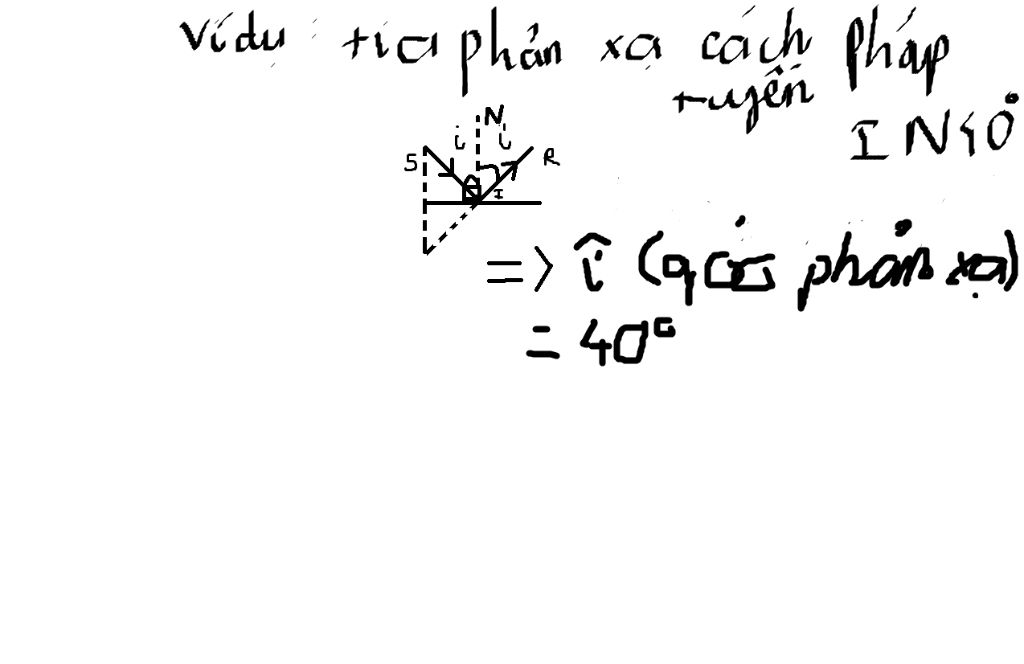 Ví dụ : tia phản xạ cách pháp
tuyến
IN 40°
N
S i i' R
I
=> î (góc phản xạ)
= 40°